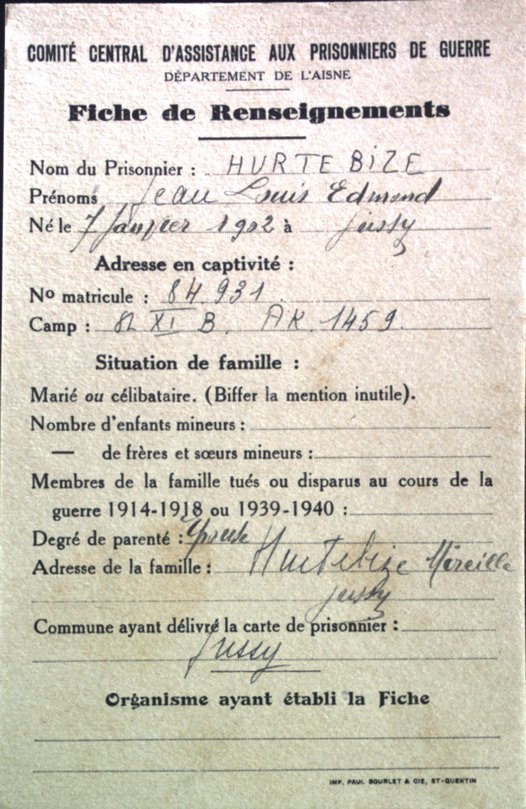 COMITÉ CENTRAL D'ASSISTANCE AUX PRISONNIERS DE GUERRE
DÉPARTEMENT DE L'AISNE
Fiche de Renseignements
Nom du Prisonnier : HURTEBIZE
Prénoms Jean Louis Edmond
Né le 7 Janvier 1902 à Jussy
Adresse en captivité :
No matricule : 84.931
Camp : XI B. AK. 1459.
Situation de famille :
Marié ou célibataire. (Biffer la mention inutile).
Nombre d'enfants mineurs :
— de frères et sœurs mineurs :
Membres de la famille tués ou disparus au cours de la
guerre 1914-1918 ou 1939-1940 :
Degré de parenté : Epouse
Adresse de la famille : Hurtebize Mireille
Jussy
Commune ayant délivré la carte de prisonnier :
Jussy
Organisme ayant établi la Fiche
IMP. PAUL BOURLET & CIE, ST-QUENTIN